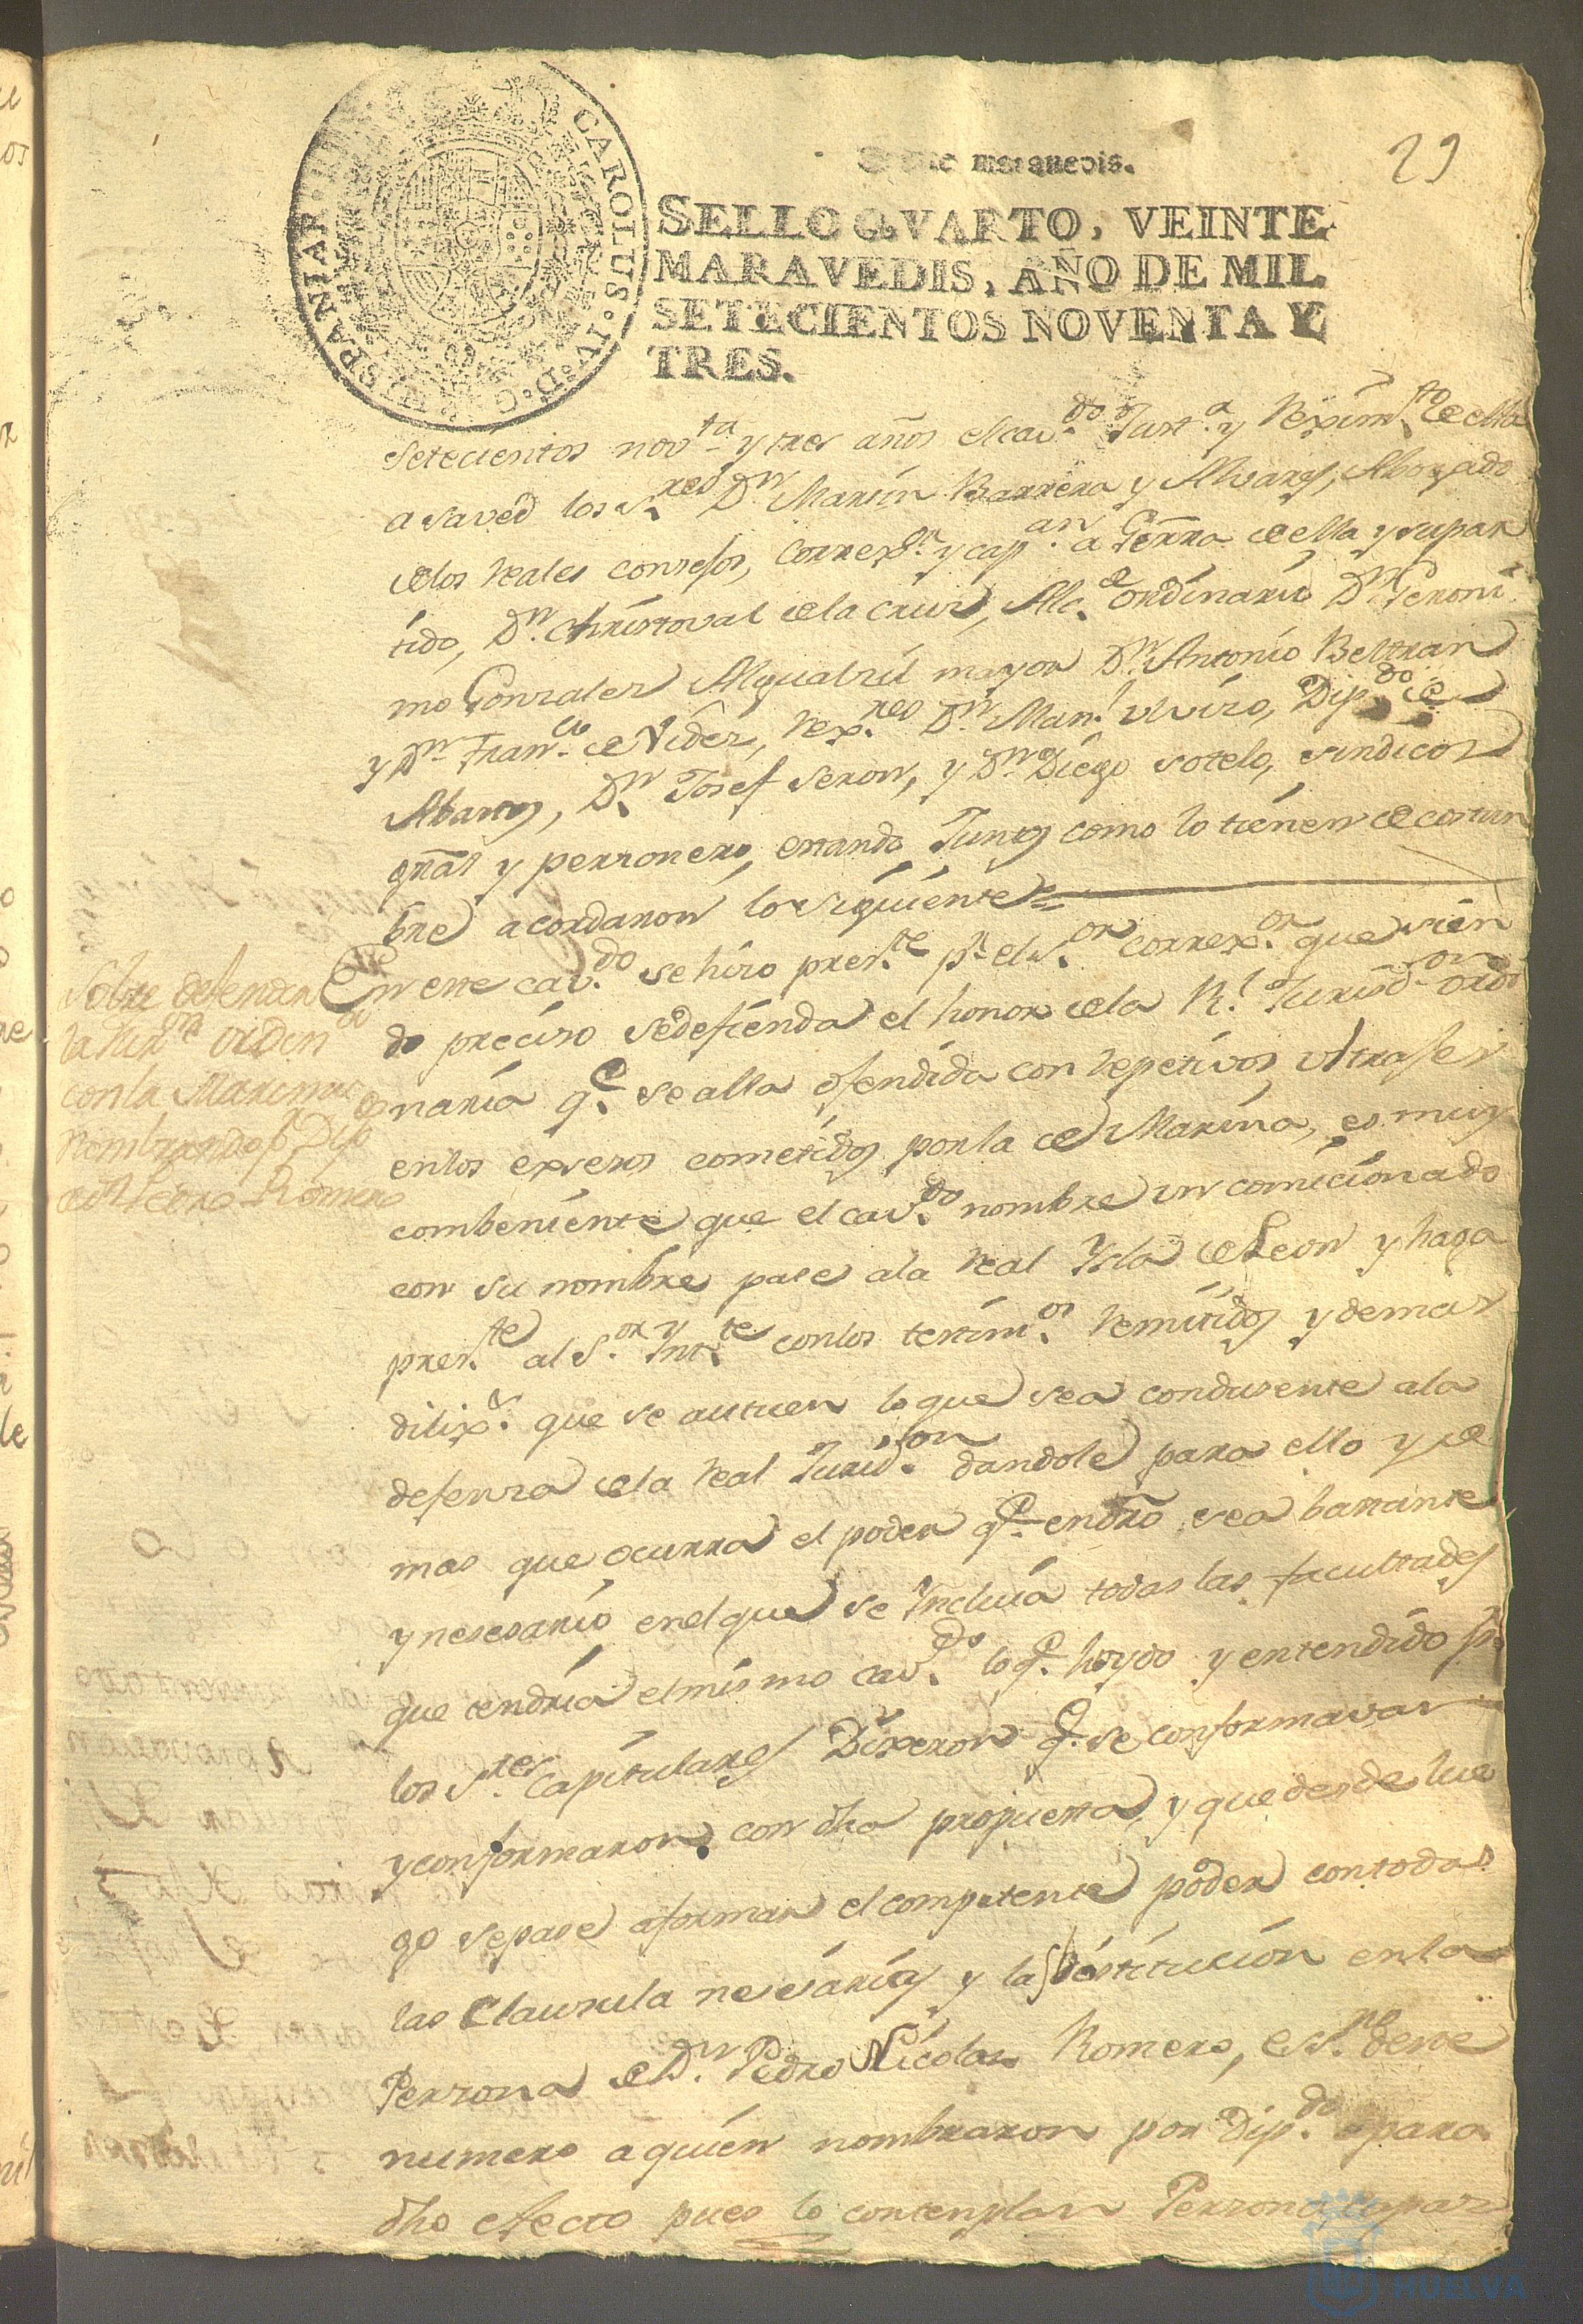 29
maravedis.
CAROLUS·IV·D·G· HISPANIAR·
SELLO QVARTO, VEINTE
MARAVEDIS, AÑO DE MIL
SETECIENTOS NOVENTA Y
TRES.
Setecientos nov.ta y tres años el cav.do Just.a y Reximto de ella
a saved los S.res Dn Martin Barrera y Alvares, Abogado
delos Reales consejos, Correx.or y cap.an a Gerra de ella y supar
tido, Dn. Christoval dela cruz, Alc.e ordinario Dn Geroni
mo Gonzales Algualzil mayor Dn. Antonio Beltran
y Dn Fran.co de Vides, Rex.res Dn. Man.l Viviro, Dip.do de
Abastos, Dn. Josef Seron, y Dn Diego Sotelo, sindicos
gral y personero, estando Juntos como lo tienen de costum
bre acordaron lo siguiente=
En este cav.do se hizo pres.te pr el S.or correx.or que sien
do preciso sedefienda el honor dela Rl. Jurisd.on ordi
naria q.e se alla ofendida con repetivos ultrajes
enlos exsesos cometidos por la de Marina, es muy
combeniente que el cav.do nombre un comicionado
con su nombre pase ala Real Ysla de Leon y haga
pres.te al S.or Ynt.te conlos testim.os Remitidos y demas
dilix.s que se autuen lo que sea condusente ala
defensa dela Real Jurisd.on dandole para ello y de
mas que ocurra el poder q.e en dro sea bastante
y nesesario enel que se Yncluia todas las facultades
que tendria el mismo cav.do lo q.e hoydo y entendido pr.
los S.res Capitulares Dixeron q.e se conformavan
y conformaron con dha propuesta, y que desde lue
go sepase aformar el competente poder con todas
las Clausula nesesarias y la sostitucion en la
Persona de Dn. Pedro Nicolas Romero, ess.no deste
numero a quien nombraron por Dip.do para
dho efecto pues lo contemplan Persona capaz
Sobre defender
la Jurn ordin
con la Marina
Nombrando pr Dip
a Dn Pedro Romero
HUELVA